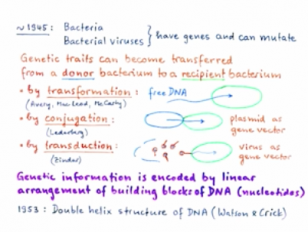 ~1945: Bacteria
Bacterial viruses } have genes and can mutate
Genetic traits can become transferred
from a donor bacterium to a recipient bacterium
• by transformation: free DNA
(Avery, MacLeod, McCarty)
• by conjugation: plasmid as
(Lederberg) gene vector
• by transduction: virus as
(Zinder) gene vector
Genetic information is encoded by linear
arrangement of building blocks of DNA (nucleotides)
1953: Double helix structure of DNA (Watson & Crick)